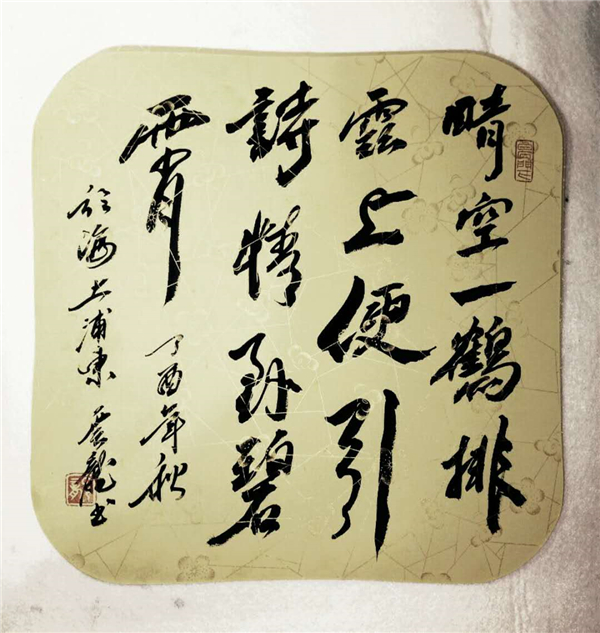 晴空一鹤排
雲上便引
詩情到碧
霄
丁酉年秋
於海上浦東震龍书